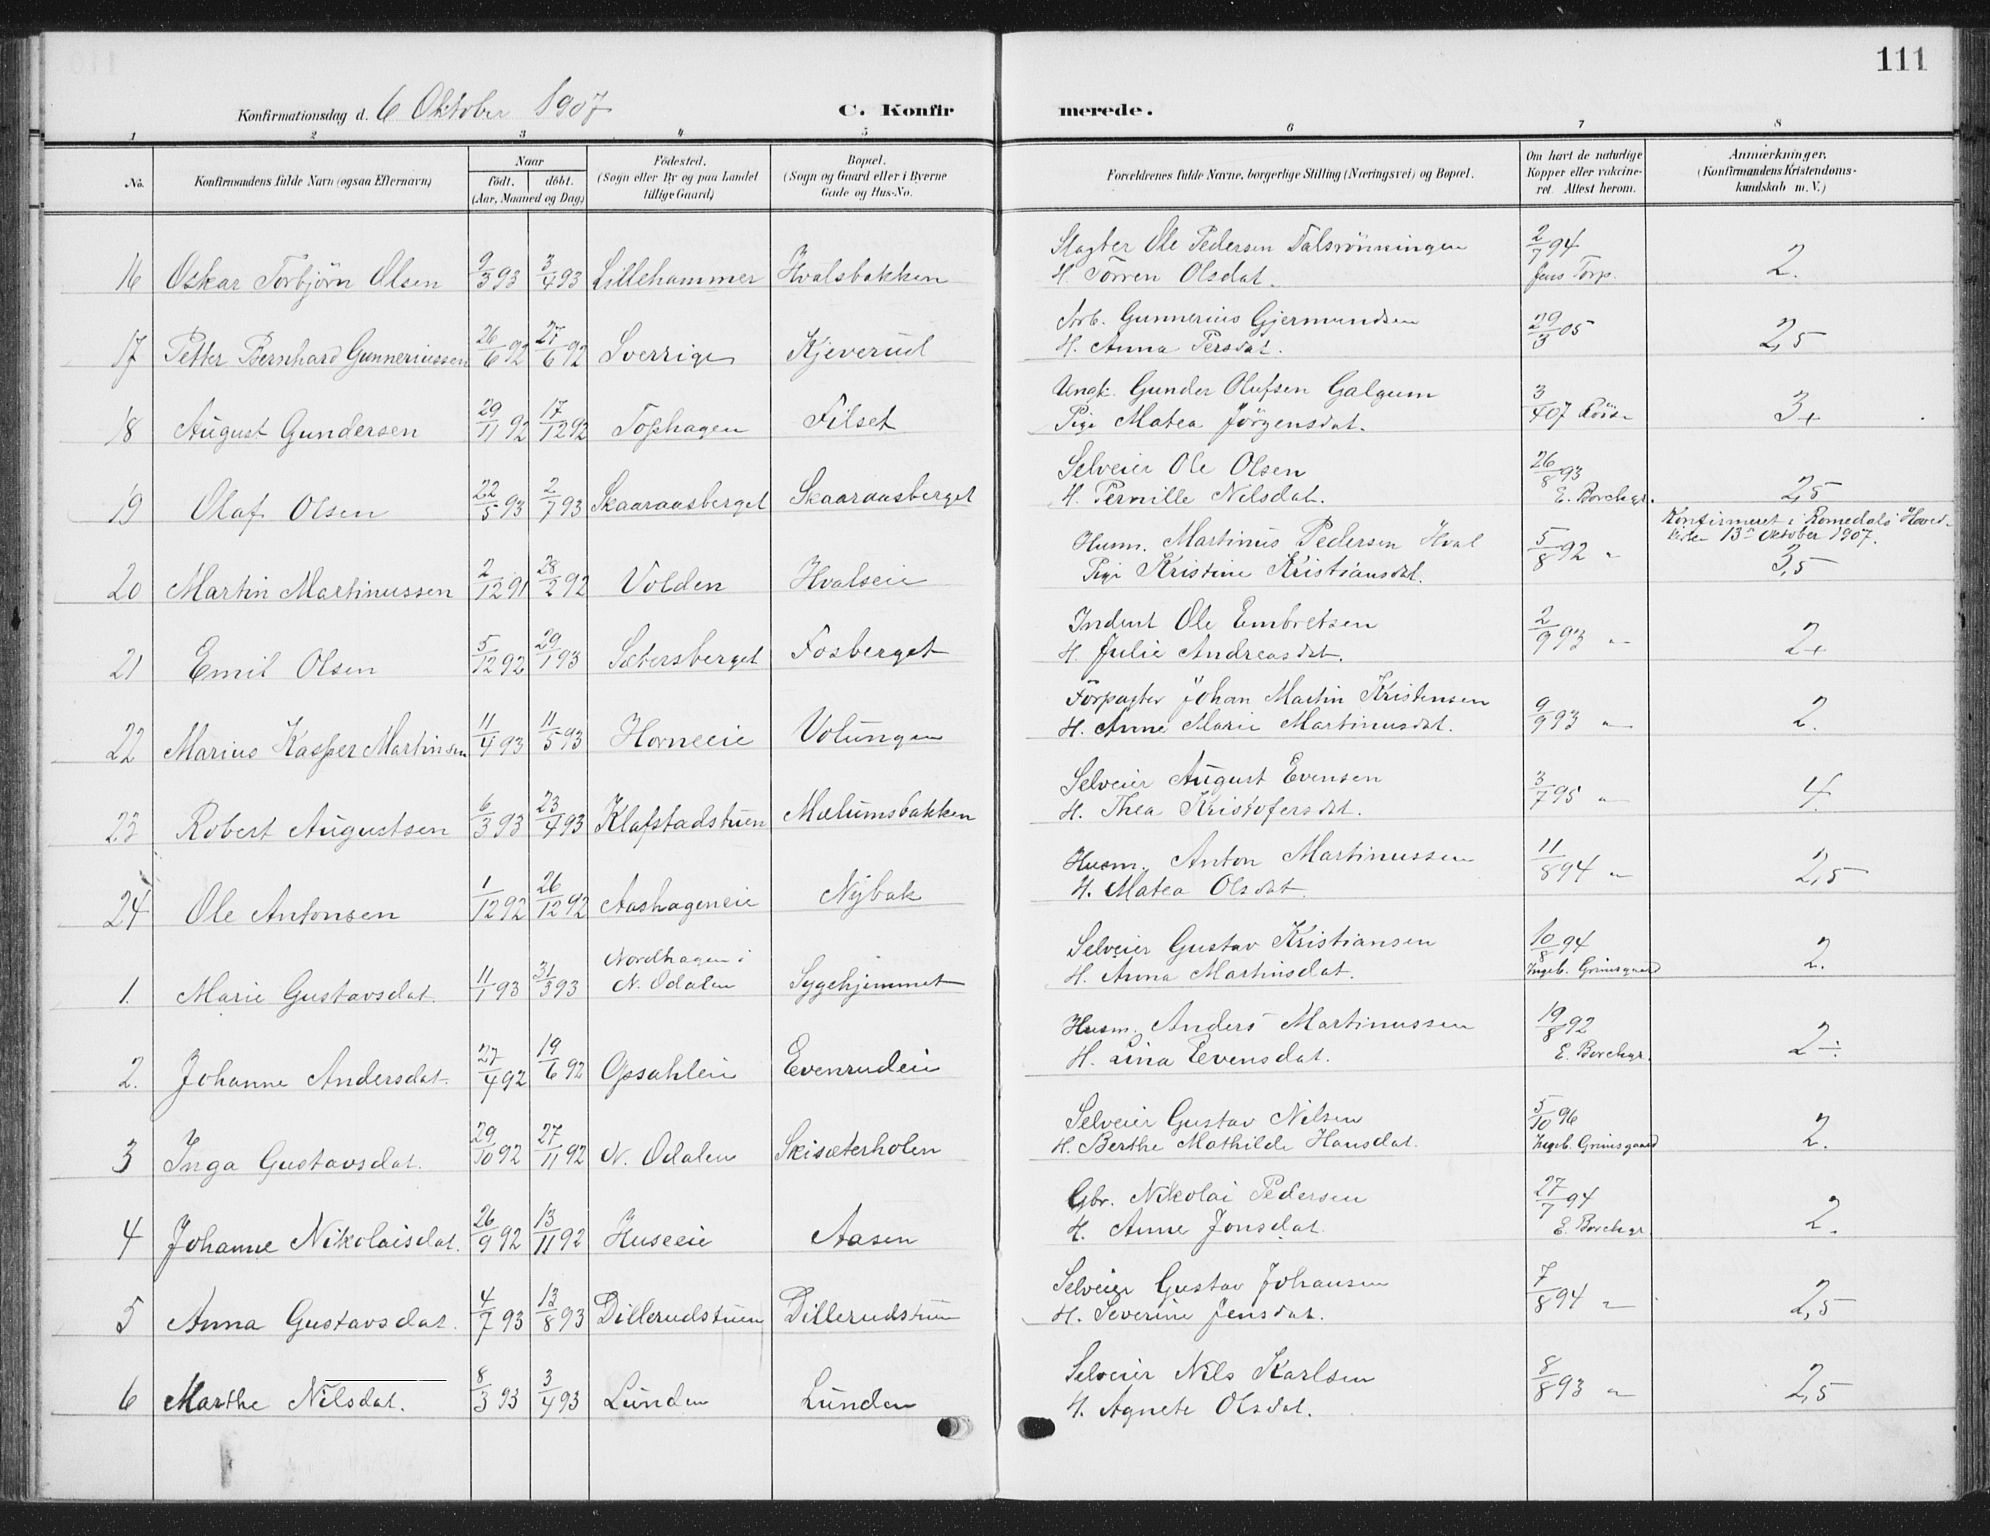 111
Konfirmationsdag d. 6 Oktober 1907 C. Konfirmerede.
1 2 3 4 5 6 7 8
No. Konfirmandens fulde Navn (ogsaa Efternavn) Naar født. døbt. (Aar, Maaned og Dag) Fødested. (Sogn eller By og paa Landet tillige Gaard) Bopæl. (Sogn og Gaard eller i Byerne Gade og Hus-No. Forældrenes fulde Navne, borgerlige Stilling (Næringsvei) og Bopæl. Om havt de naturlige Kopper eller vakcineret. Attest herom. Anmærkninger. (Konfirmandens Kristendomskundskab m. V.)
16 Oskar Torbjørn Olsen 9/3 93 3/4 93 Lillehammer Hvalsbakken Slagter Ole Pedersen Dalsrønningen 2/7 94
H. Torren Olsdat. Jens Torp. 2.
17 Petter Bernhard Gunneriussen 26/6 92 27/6 92 Sverrige Kjeverud Arb. Gunnerius Gjermundsen 29/3 05
H. Anna Persdat. 2,5
18 August Gundersen 29/11 92 17/12 92 Tophagen Filset Ungk. Gunder Olufsen Galgum 3/4 07
Pige Matea Jörgensdat. 3+
19 Olaf Olsen 22/5 93 2/7 93 Skaaraasberget Skaaraasberget Selveier Ole Olsen 26/8 93
H. Pernille Nilsdat. E. Borchgr. 2,5
Konfirmeret i Romedals Hoved-
kirke 13de Oktober 1907.
20 Martin Martinussen 2/12 91 28/2 92 Volden Hvalseie Husm. Martinus Pedersen Hval 5/8 92 "
Pige Kristine Kristiansdat. 3,5
21 Emil Olsen 5/12 92 29/1 93 Sætersberget Fosberget Inderst Ole Embretsen 2/9 93 "
H. Julie Andreasdat. 2+
22 Marius Kasper Martinsen 11/4 93 11/5 93 Horneeie Volungen Forpagter Johan Martin Kristensen 9/9 93 "
H. Anne Marie Martinusdat. 2.
23 Robert Augustsen 6/3 93 23/4 93 Klafstadstuen Mælumsbakken Selveier August Evensen 3/7 95 "
H. Thea Kristofersdat. 4.
24 Ole Antonsen 1/12 92 26/12 92 Aashageneie Nybak Husm. Anton Martinussen 11/8 94 "
H. Matea Olsdat. 2,5
1. Marie Gustavsdat. 11/1 93 31/3 93 Nordhagen i N. Odalen Sygehjemmet Selveier Gustav Kristiansen 10/8 94
H. Anna Martinsdat. Ingeb. Grinsgaard 2.
2. Johanne Andersdat. 27/4 92 19/6 92 Opsahleie Evenrudeie Husm. Anders Martinussen 19/8 92
H. Lina Evensdat. E. Borchgr. 2÷
3 Inga Gustavsdat. 29/10 92 27/11 92 N. Odalen Skisæterholen Selveier Gustav Nilsen 5/10 96
H. Berthe Mathilde Hansdat. Ingeb. Grinsgaard 2.
4 Johanne Nikolaisdat. 26/9 92 13/11 92 Huseeie Aasen Gbr. Nikolai Pedersen 27/7 94
H. Anne Jonsdat. E. Borchgr. 2.
5 Anna Gustavsdat. 4/7 93 13/8 93 Dillerudstuen Dillerudstuen Selveier Gustav Johansen 7/8 94 "
H. Severine Jensdat. 2,5
6 Marthe Nilsdat. 8/3 93 3/4 93 Lunden Lunden Selveier Nils Karlsen 8/8 93 "
H. Agnete Olsdat. 2,5